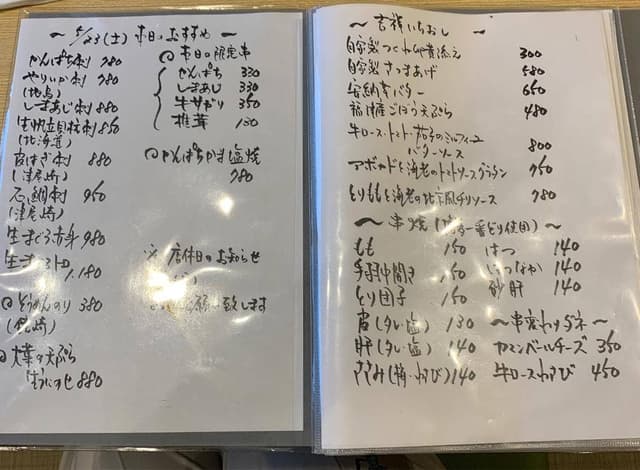 ~ 5/23(土) 本日のおすすめ ~
かんぱち刺 980
やりいか刺 980
しまあじ刺 880
生帆立貝柱刺 850
(北海道)
皮はぎ刺 880
(津居崎)
石鯛刺 950
(津居崎)
生まぐろ赤身 980
1,180
そうめんのり 380
大葉の天ぷら
880
◎本日の限定串
かんぱち 330
しまあじ 330
牛サガリ 350
椎茸 130
◎かんぱちかま塩焼
980
※ 店休日のお知らせ
お願い致します
~ 吉祥いちおし ~
自家製つくね卵黄添え 300
自家製さつまあげ 580
安納芋バター 650
福津産ごぼう天ぷら 480
牛ロース・トマト・茄子のミルフィーユ
バターソース 800
アボカドと海老のトマトソースグラタン 950
とりももと海老の北京風チリソース 980
~ 串焼 (一番どり使用) ~
もも 150
手羽中開き 150
とり団子 150
皮(タレ・塩) 130
肝(タレ・塩) 140
ささみ(梅・わさび) 140
はつ 140
140
砂肝 140
~串変わりダネ~
カマンベールチーズ 350
牛ロースわさび 450